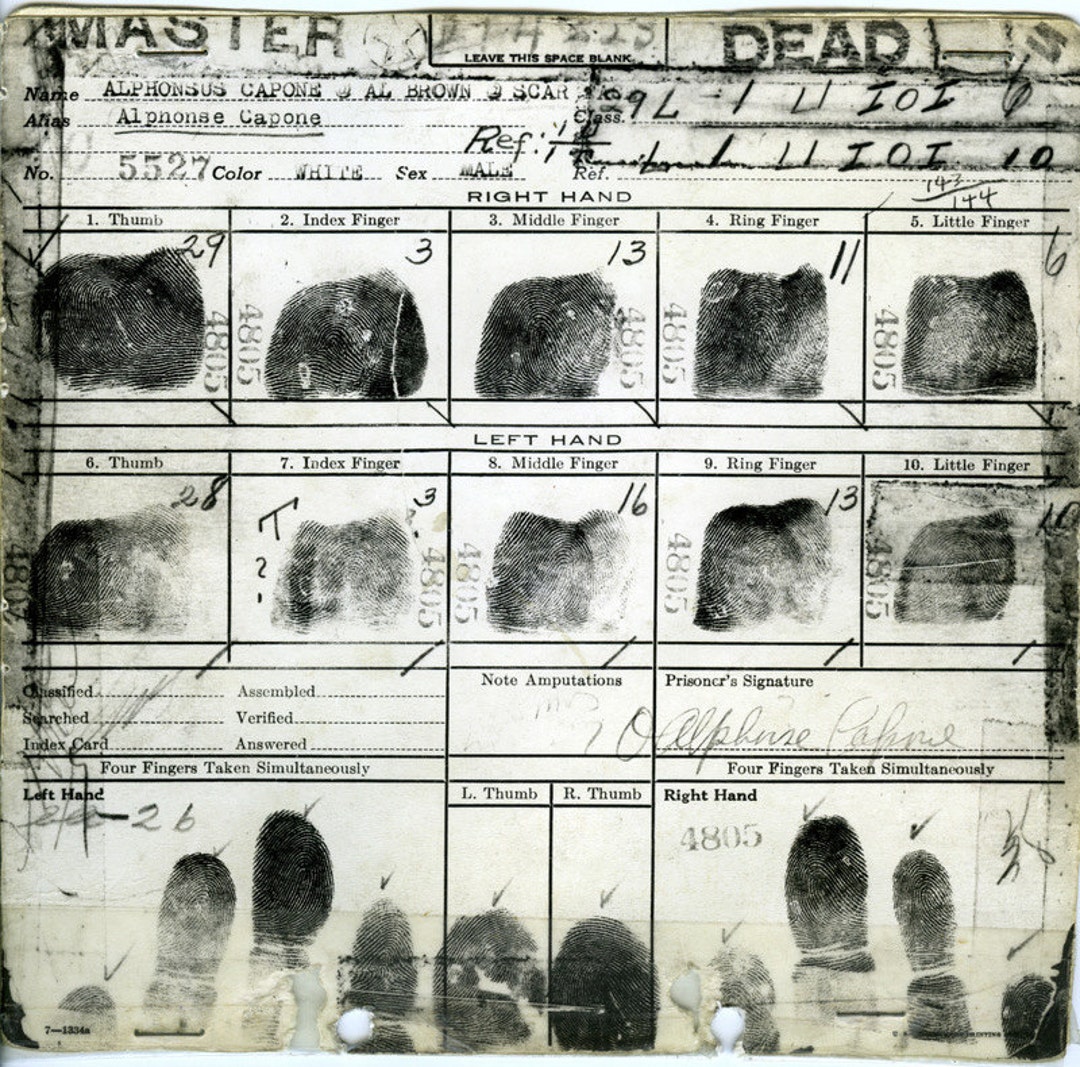 MASTER DEAD
LEAVE THIS SPACE BLANK
Name ALPHONSUS CAPONE @ AL BROWN @ SCAR
Class. 9 L 1 U IOI 6
Alias Alphonse Capone
Ref: 1
Ref. L 1 U IOI 10
No. 5527 Color WHITE Sex MALE
143/144
RIGHT HAND
1. Thumb 2. Index Finger 3. Middle Finger 4. Ring Finger 5. Little Finger
29 3 13 11 6
4805 4805 4805 4805 4805
LEFT HAND
6. Thumb 7. Index Finger 8. Middle Finger 9. Ring Finger 10. Little Finger
28 T ? 3 16 13 10
4805 4805 4805 4805 4805
Classified Assembled
Searched Verified
Index Card Answered
Note Amputations
0
Prisoner's Signature
Alphonse Capone
Four Fingers Taken Simultaneously
Four Fingers Taken Simultaneously
Left Hand L. Thumb R. Thumb Right Hand
26
4805
7—1334a